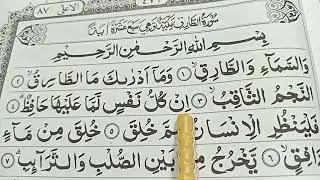 الاعلى ٨٧
سُورَةُ الطَّارِقِ مَكِّيَّةٌ وَهِيَ سَبْعَ عَشَرَةَ اٰيَةً
بِسْمِ اللّٰهِ الرَّحْمٰنِ الرَّحِيْمِ
وَالسَّمَآءِ وَالطَّارِقِ ١ وَمَآ اَدْرٰىكَ مَا الطَّارِقُ ٢
النَّجْمُ الثَّاقِبُ ٣ اِنْ كُلُّ نَفْسٍ لَّمَّا عَلَيْهَا حَافِظٌ ٤
فَلْيَنْظُرِ الْاِنْسَانُ مِمَّ خُلِقَ ٥ خُلِقَ مِنْ مَّآءٍ
دَافِقٍ ٦ يَّخْرُجُ مِنْۢ بَيْنِ الصُّلْبِ وَالتَّرَآئِبِ ٧